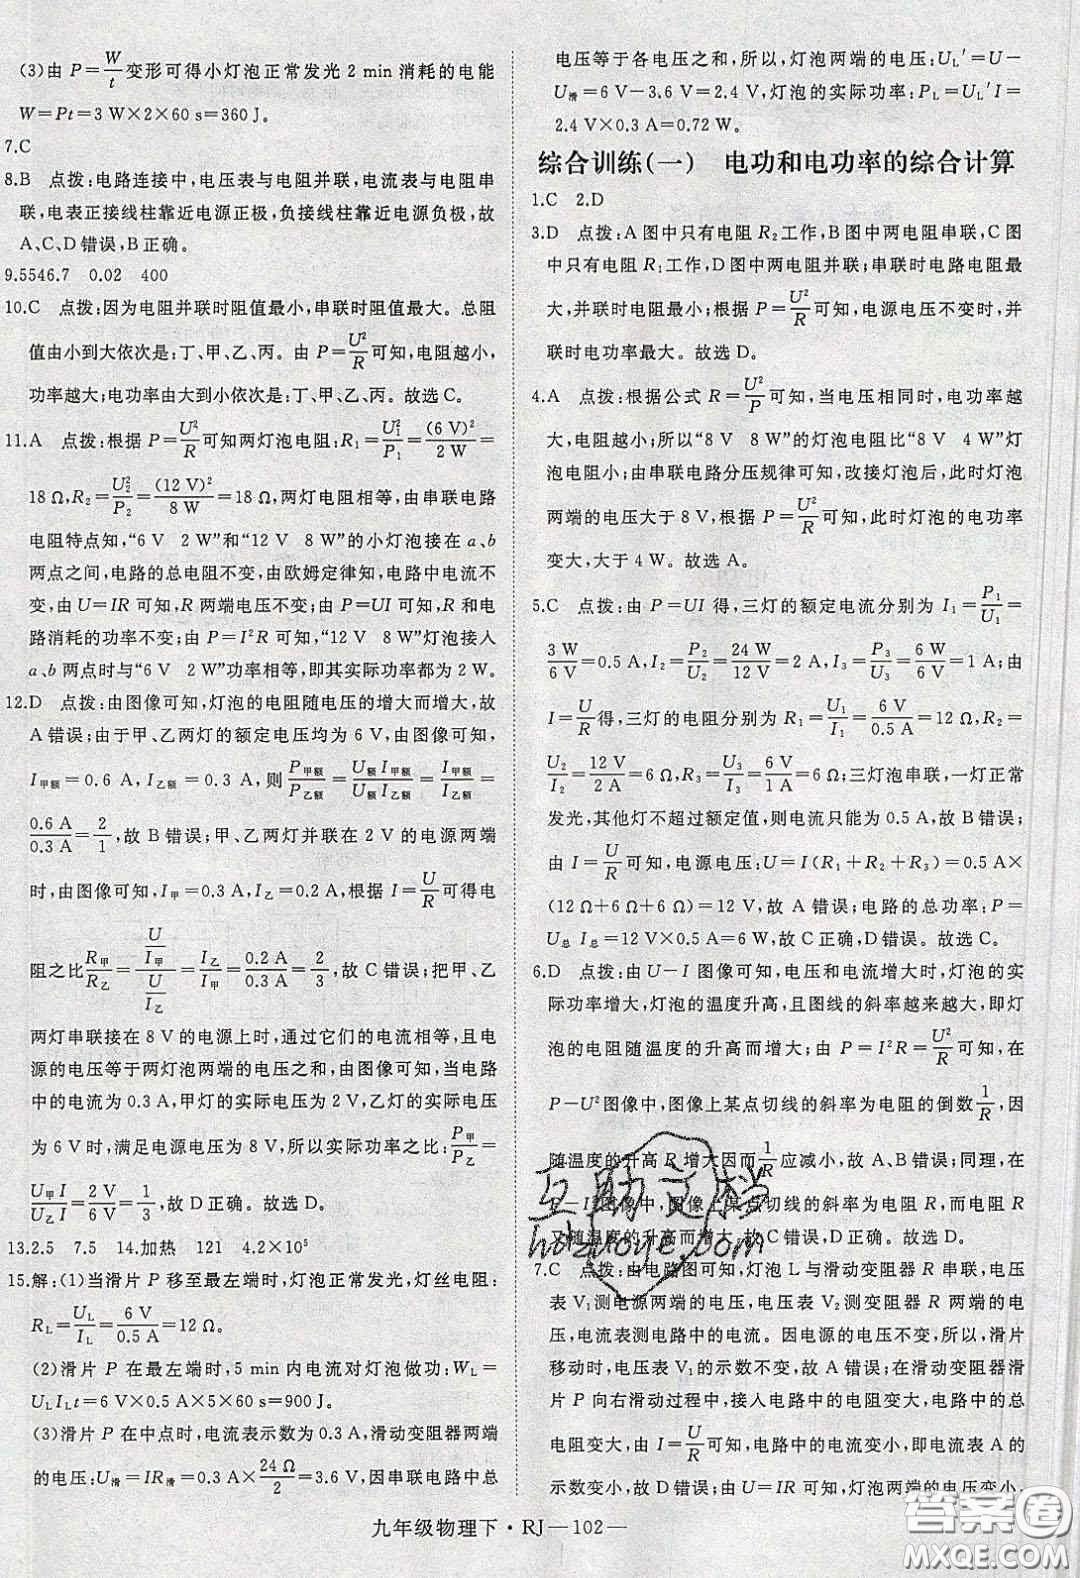 (3)由 P=W/t变形可得小灯泡正常发光 2 min 消耗的电能
W=Pt=3 W×2×60 s=360 J。
7.C
8.B 点拨:电路连接中,电压表与电阻并联,电流表与电阻串
联,电表正接线柱靠近电源正极,负接线柱靠近电源负极,故
A、C、D 错误,B 正确。
9.5546.7 0.02 400
10.C 点拨:因为电阻并联时阻值最小,串联时阻值最大。总阻
值由小到大依次是:丁、甲、乙、丙。由 P=U²/R可知,电阻越小,
功率越大;电功率由大到小依次是:丁、甲、乙、丙。故选 C。
11.A 点拨:根据 P=U²/R可知两灯泡电阻:R₁=U₁²/P₁=(6 V)²/2 W=
18 Ω,R₂=U₂²/P₂=(12 V)²/8 W=18 Ω,两灯电阻相等,由串联电路
电阻特点知,“6 V 2 W”和“12 V 8 W”的小灯泡接在 a、b
两点之间,电路的总电阻不变,由欧姆定律知,电路中电流不
变,由 U=IR 可知,R 两端电压不变;由 P=UI 可知,R 和电
路消耗的功率不变;由 P=I²R 可知,“12 V 8 W”灯泡接入
a、b 两点时与“6 V 2 W”功率相等,即其实际功率都为 2 W。
12.D 点拨:由图像可知,灯泡的电阻随电压的增大而增大,故
A 错误;由于甲、乙两灯的额定电压均为 6 V,由图像可知,
I甲额=0.6 A,I乙额=0.3 A,则 P甲额/P乙额=U额I甲额/U额I乙额=I甲额/I乙额=
0.6 A/0.3 A=2/1,故 B 错误;甲、乙两灯并联在 2 V 的电源两端
时,由图像可知,I甲=0.3 A,I乙=0.2 A,根据 I=U/R可得电
阻之比R甲/R乙=(U/I甲)/(U/I乙)=I乙/I甲=0.2 A/0.3 A=2/3,故 C 错误;把甲、乙
两灯串联接在 8 V 的电源上时,通过它们的电流相等,且电
源的电压等于两灯泡两端的电压之和,由图像可知,当电路
中的电流为 0.3 A,甲灯的实际电压为 2 V,乙灯的实际电压
为 6 V 时,满足电源电压为 8 V,所以实际功率之比:P甲/P乙=
U甲I/U乙I=2 V/6 V=1/3,故 D 正确。故选 D。
13.2.5 7.5 14.加热 121 4.2×10⁵
15.解:(1)当滑片 P 移至最左端时,灯泡正常发光,灯丝电阻:
R_L=U_L/I_L=6 V/0.5 A=12 Ω。
(2)滑片 P 在最左端时,5 min 内电流对灯泡做功:W_L=
U_LI_Lt=6 V×0.5 A×5×60 s=900 J。
(3)滑片 P 在中点时,电流表示数为 0.3 A,滑动变阻器两端
的电压:U滑=IR滑=0.3 A×24 Ω/2=3.6 V,因串联电路中总
电压等于各电压之和,所以,灯泡两端的电压:U_L′=U-
U滑=6 V-3.6 V=2.4 V,灯泡的实际功率:P_L=U_L′I=
2.4 V×0.3 A=0.72 W。
综合训练(一) 电功和电功率的综合计算
1.C 2.D
3.D 点拨:A 图中只有电阻 R₂工作,B 图中两电阻串联,C 图
中只有电阻 R₁工作,D 图中两电阻并联;串联电路电阻最
大,并联时电阻最小;根据 P=U²/R可知,电源电压不变时,并
联时电功率最大。故选 D。
4.A 点拨:根据公式 R=U²/P可知,当电压相同时,电功率越
大,电阻越小;所以“8 V 8 W”的灯泡电阻比“8 V 4 W”灯
泡电阻小;由串联电路分压规律可知,改接灯泡后,此时灯泡
两端的电压大于 8 V,根据 P=U²/R可知,此时灯泡的电功率
变大,大于 4 W。故选 A。
5.C 点拨:由 P=UI 得,三灯的额定电流分别为 I₁=P₁/U₁=
3 W/6 V=0.5 A,I₂=P₂/U₂=24 W/12 V=2 A,I₃=P₃/U₃=6 W/6 V=1 A;由
I=U/R得,三灯的电阻分别为 R₁=U₁/I₁=6 V/0.5 A=12 Ω,R₂=
U₂/I₂=12 V/2 A=6 Ω,R₃=U₃/I₃=6 V/1 A=6 Ω;三灯泡串联,一灯正常
发光,其他灯不超过额定值,则电流只能为 0.5 A,故 B 错误;
由 I=U/R可知,电源电压:U=I(R₁+R₂+R₃)=0.5 A×
(12 Ω+6 Ω+6 Ω)=12 V,故 A 错误;电路的总功率:P=
U总 I总=12 V×0.5 A=6 W,故 C 正确,D 错误。故选 C。
6.D 点拨:由 U-I 图像可知,电压和电流增大时,灯泡的实
际功率增大,灯泡的温度升高,且图线的斜率越来越大,即灯
泡的电阻随温度的升高而增大;由 P=I²R=U²/R可知,在
P-U²图像中,图像上某点切线的斜率为电阻的倒数1/R,因
随温度的升高 R 增大因而1/R应减小,故 A、B 错误;同理,在
图像中,图像上某点切线的斜率为电阻 R,而电阻 R
又随温度的升高而增大,故 C 错误,D 正确。故选 D。
7.C 点拨:由电路图可知,灯泡 L 与滑动变阻器 R 串联,电压
表 V₁测电源两端的电压,电压表 V₂测变阻器 R 两端的电
压,电流表测电路中的电流。因电源的电压不变,所以,滑片
移动时,电压表 V₁的示数不变,故 A 错误;在滑动变阻器滑
片 P 向右滑动过程中,接入电路中的电阻变大,电路中的总
电阻变大,由 I=U/R可知,电路中的电流变小,即电流表 A 的
示数变小,故 B 错误;由 U=IR 可知,灯泡两端的电压变小,
九年级物理下·RJ—102—
互助文档
hdzuoye.com
答案圈
MXQE.COM